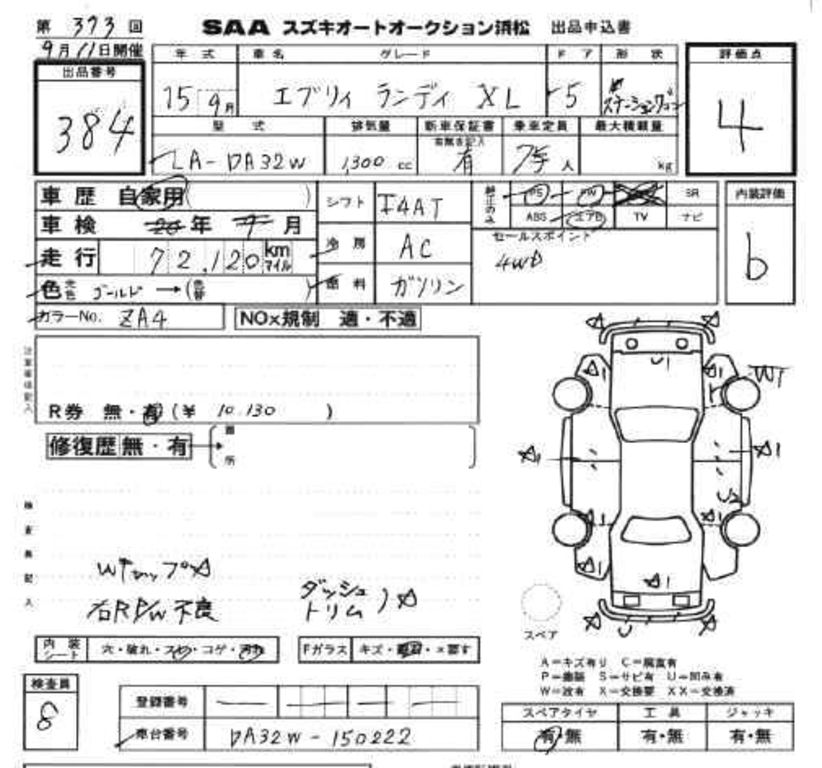 第 373 回 SAA スズキオートオークション浜松 出品申込書
9月11日開催
出品番号 384
年式 車名 グレード ドア 形状 評価点
15 9月 エブリィ ランディ XL 5 ステーションワゴン 4
型式 排気量 新車保証書 乗車定員 最大積載量
有無を記入
LA-DA32W 1,300 cc 有 7 人 kg
車歴 自家用( ) シフト I4AT 純正のみ PS PW SR 内装評価
車検 年 月 ABS エアB TV ナビ
走行 72,120 km マイル 冷房 AC セールスポイント b
4WD
色 元色 ゴールド →(色替 ) 燃料 ガソリン
カラーNo. ZA4 NOx規制 適・不適
R券 無・有 (¥ 10,130 )
修復歴 無・有 → 箇所
A1 A1 U1 WT
A1 A1 U2
A1 A1
A1 A1 A1
U
検査員記入
WTップA
右RP/W不良
ダッシュ
トリム ) A
スペア
内装シート 穴・破れ・スレ・コゲ・汚れ Fガラス キズ・・×要す
A=キズ有り C=腐食有
P=塗装 S=サビ有 U=凹み有
W=波有 X=交換要 XX=交換済
検査員 8
登録番号
車台番号 DA32W-150222
スペアタイヤ 工具 ジャッキ
有・無 有・無 有・無